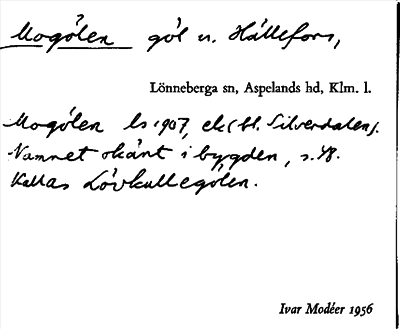 Mogölen göl n. Hällefors,
Lönneberga sn, Aspelands hd, Klm. l.
Mogölen ls 1907, ek (bl. Silverdalen).
Namnet okänt i bygden, s. 48.
Kallas Lövkullegölen.
Ivar Modéer 1956